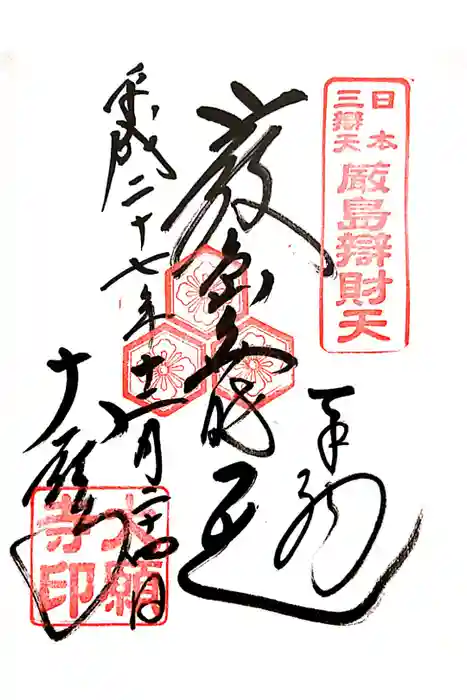 日本
三辯天
厳島辯財天
奉拝
厳島
平成二十七年十二月二十四日
大願寺
大願
寺印